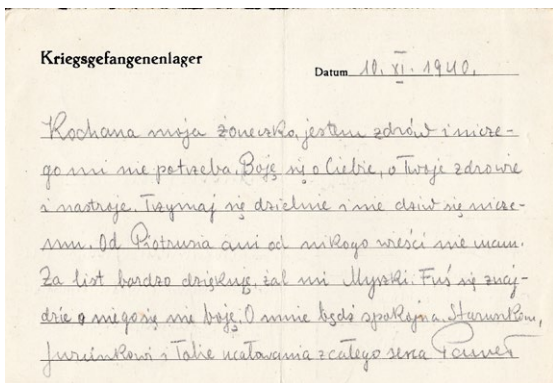 Kriegsgefangenenlager
Datum 10. XI. 1940.
Kochana moja żoneczko, jestem zdrów i nicze-
go mi nie potrzeba. Boję się o Ciebie, o Twoje zdrowie
i nastroje. Trzymaj się dzielnie i nie dziw się nicze-
mu. Od Piotrusia ani od nikogo wieści nie mam.
Za list bardzo dziękuję, żal mi Myszki. Fuś się znaj-
dzie o niego się nie boję. O mnie bądź spokojna. Staruszkom,
Jurcinkowi i Tobie ucałowania z całego serca Paweł